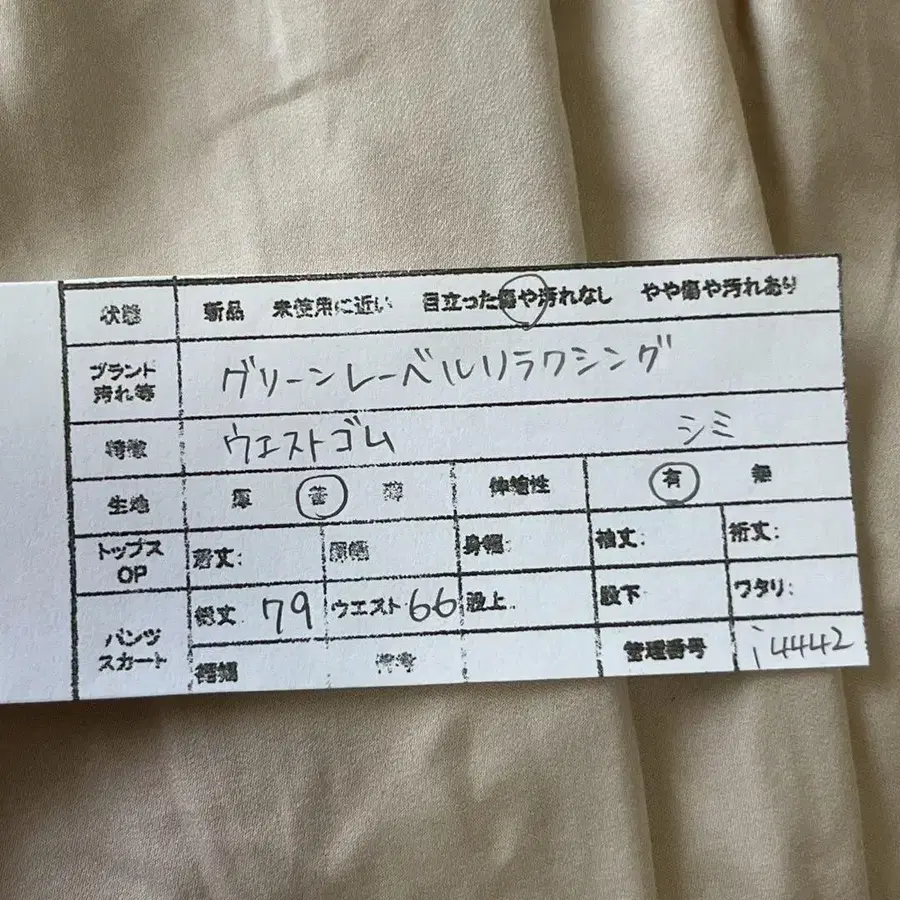 状態 新品 未使用に近い 目立った傷や汚れなし やや傷や汚れあり
ブランド
汚れ等 グリーンレーベルリラクシング
特徴 ウエストゴム シミ
生地 厚 普 薄 伸縮性 有 無
トップス
OP 着丈: 肩幅 身幅: 袖丈: 裄丈:
パンツ
スカート 総丈 79 ウエスト 66 股上 股下 ワタリ:
裾幅 備考 管理番号 i4442